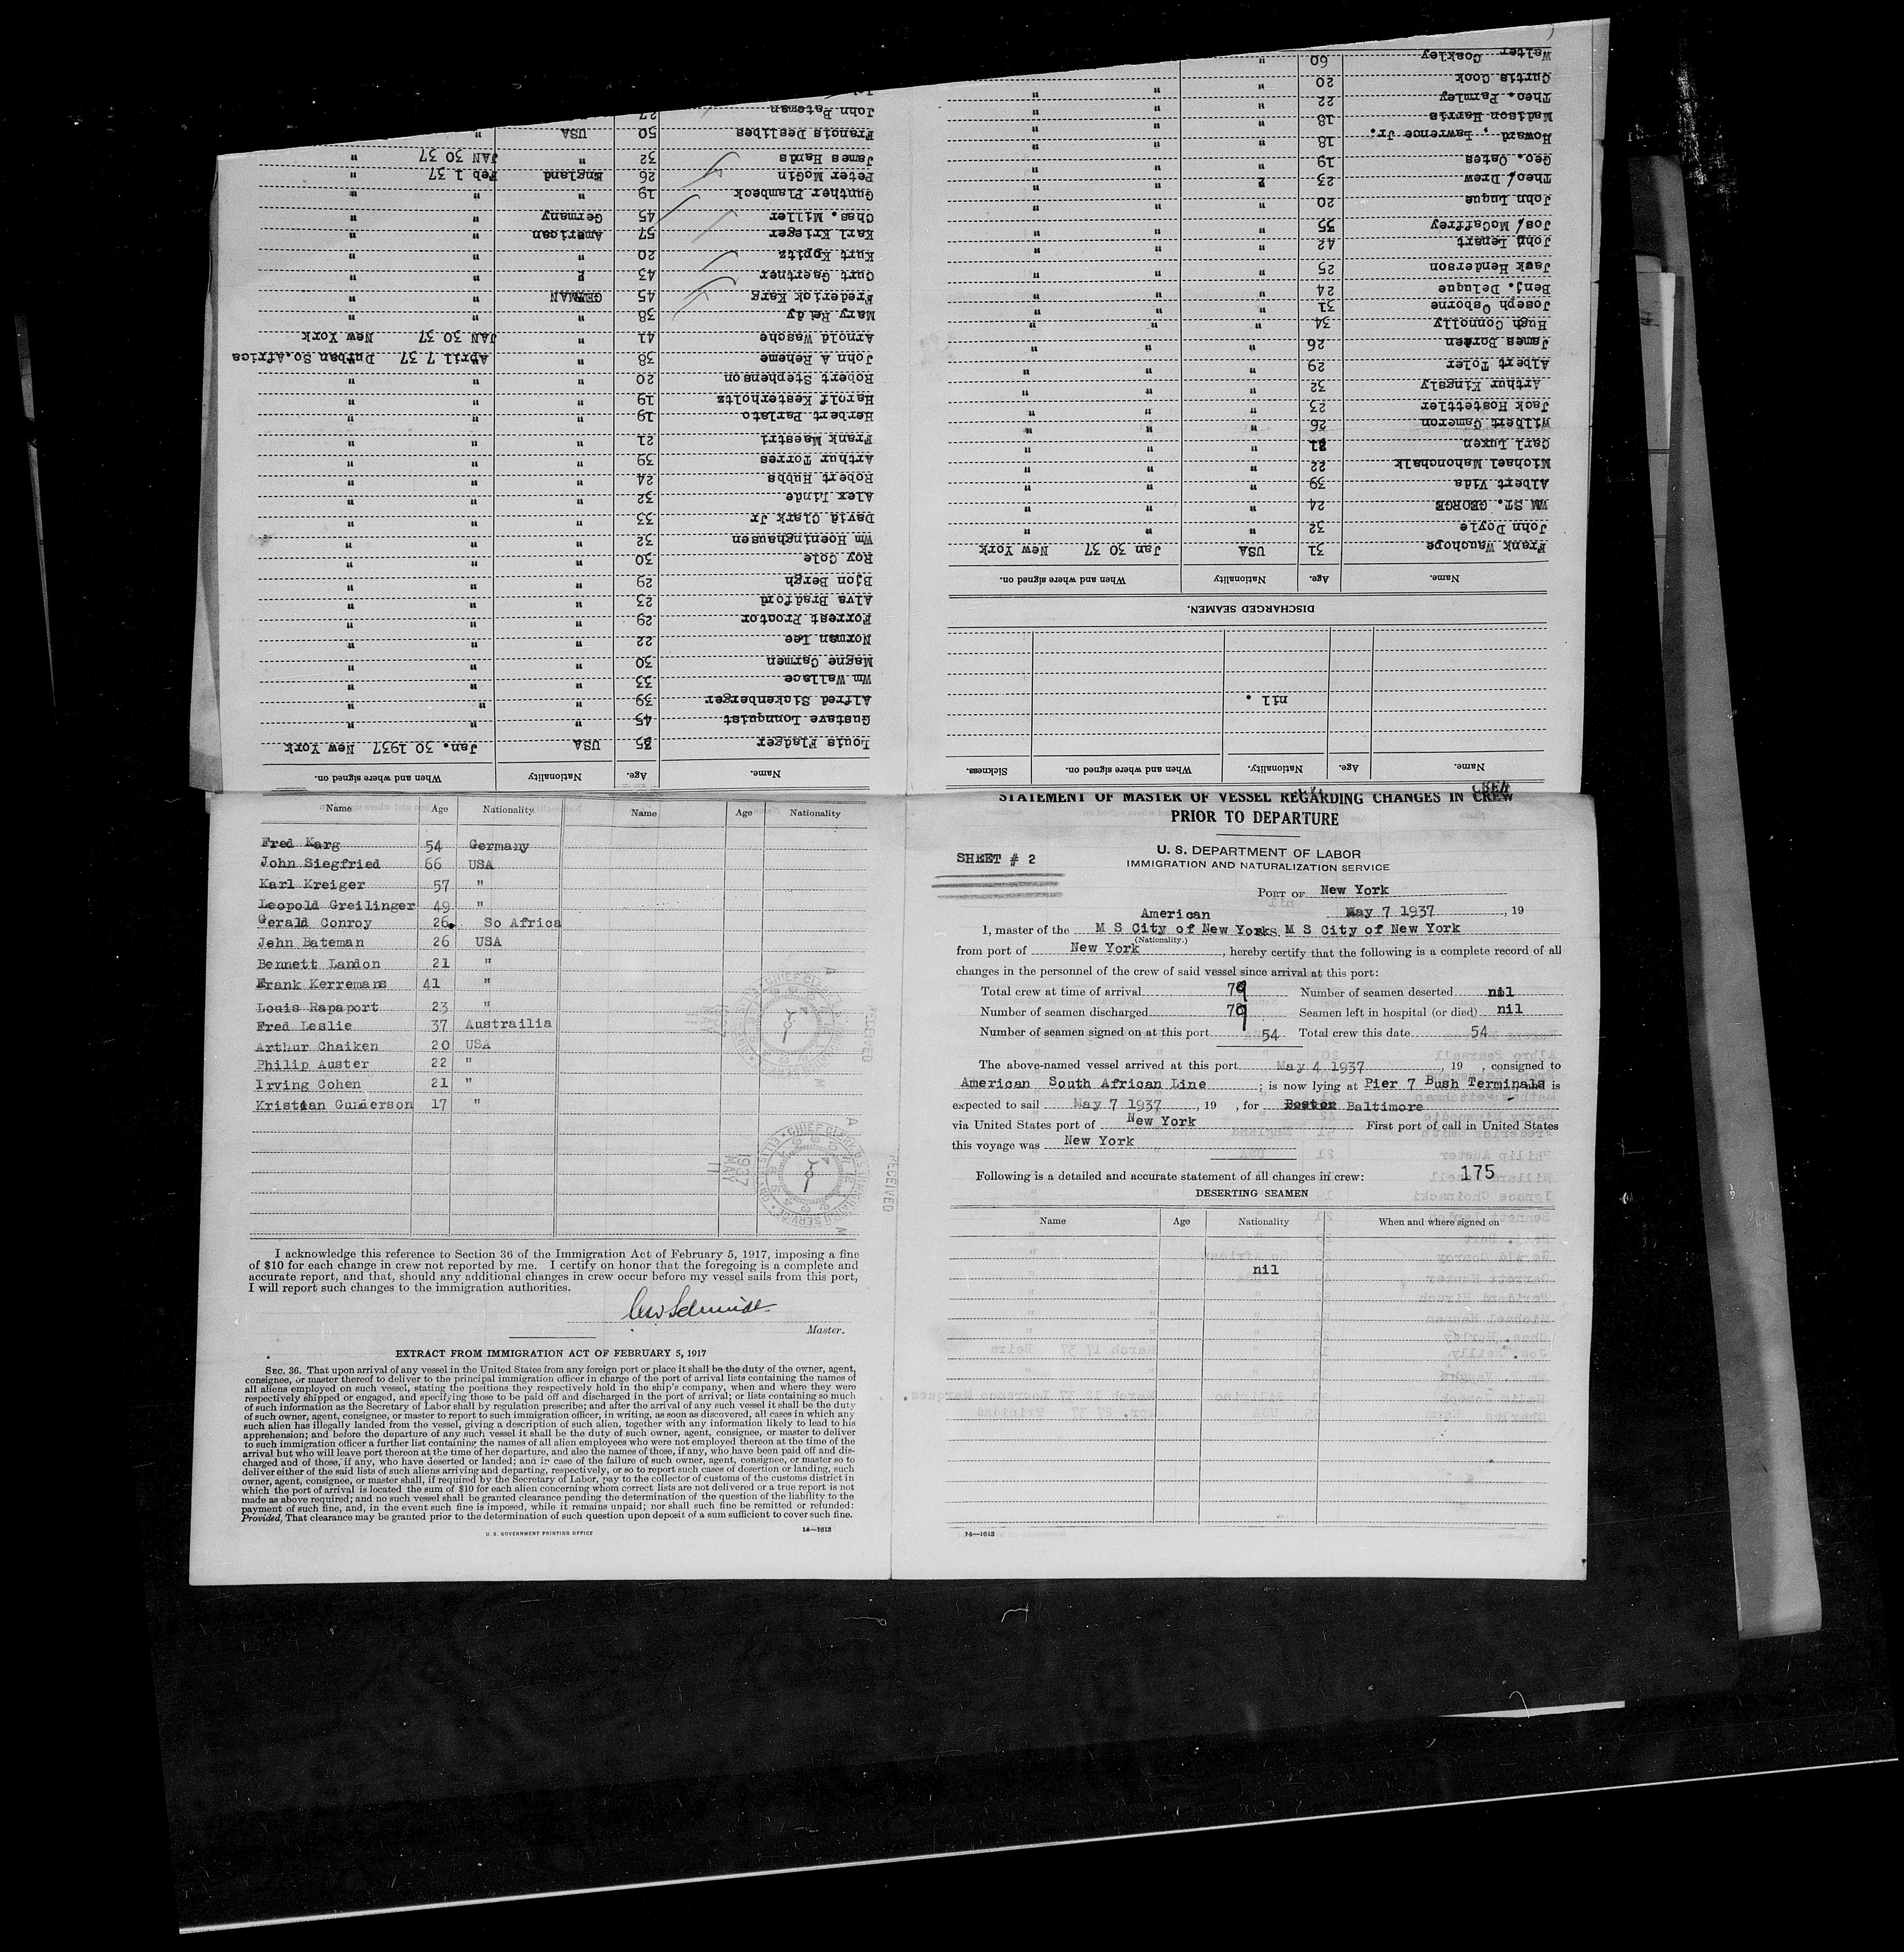 STATEMENT OF MASTER OF VESSEL REGARDING CHANGES IN CREW
PRIOR TO DEPARTURE
SHEET # 2
U. S. DEPARTMENT OF LABOR
IMMIGRATION AND NATURALIZATION SERVICE
PORT OF New York
American May 7 1937, 19
I, master of the M S City of New York S. M S City of New York
(Nationality.)
from port of New York, hereby certify that the following is a complete record of all
changes in the personnel of the crew of said vessel since arrival at this port:
Total crew at time of arrival 79 Number of seamen deserted nil
Number of seamen discharged 79 Seamen left in hospital (or died) nil
Number of seamen signed on at this port 54 Total crew this date 54
The above-named vessel arrived at this port May 4 1937, 19 , consigned to
American South African Line ; is now lying at Pier 7 Bush Terminals and is
expected to sail May 7 1937, 19 , for Boston Baltimore
via United States port of New York First port of call in United States
this voyage was New York
Following is a detailed and accurate statement of all changes in crew: 175
DESERTING SEAMEN
Name Age Nationality When and where signed on
nil
14—1613
Name. Age. Nationality. When and where signed on. Sickness.
nil .
DISCHARGED SEAMEN.
Name. Age. Nationality When and where signed on.
Frank Wauchope 31 USA Jan 30 37 New York
John Doyle 32 " " "
WM ST. GEORGE 24 " " "
Albert Vida 39 " " "
Michael Mahonchalk 22 " " "
Carl Luxen 21 " " "
Wilbert Cameron 26 " " "
Jack Hostettler 23 " " "
Arthur Kingsly 32 " " "
Albert Toler 29 " " "
James Borden 26 " " "
Hugh Connolly 34 " " "
Joseph Osborne 31 " " "
Benj. Deluque 24 " " "
Jack Henderson 25 " " "
John Lenart 42 " " "
Jos/ McCaffrey 35 " " "
John Luque 20 " " "
Theo/ Drew 23 " " "
Geo. Oates 19 " " "
Howard . Lawrence Jr. 18 " " "
Madison Harris 18 " " "
Theo. Parmley 22 " " "
Curtis Cook 20 " " "
Walter Coakley 60 "
Name. Age. Nationality When and where signed on.
Louis Fladger 35 USA Jan. 30 1937 New York
Gustave Lonnquist 45 " " "
Alfred Sickenberger 39 " " "
Wm Wallace 33 " " "
Magne Carmen 30 " " "
Norman Lee 22 " " "
Forrest Proctor 29 " " "
Alva Bradford 23 " " "
Bjon Bergh 29 " " "
Roy Cole 30 " " "
Wm Hoeninghausen 32 " " "
David Clark Jr 33 " " "
Alex Linde 32 " " "
Robert Hubbs 24 " " "
Arthur Torres 39 " " "
Frank Maestri 21 " " "
Herbert Parlato 19 " " "
Harolf Kesterholtz 19 " " "
Robert Stephenson 20 " " "
John A Reheme 38 " April 7 37 Durban So.Africa
Arnold Wasche 41 " JAN 30 37 New York
Mary Reidy 38 " " "
Frederick Karg 45 GERMAN " "
Curt Gaertner 43 " " "
Kurt Kppitz 20 " " "
Karl Krieger 57 American " "
Chas. Miller 45 Germany " "
Gunther Flambeck 19 " " "
Peter McGin 26 England Feb 1 37 "
James Hands 32 " JAN 30 37 "
Francis Deslibes 50 USA "
John Bateman 27
Name Age Nationality Name Age Nationality
Fred Karg 54 Germany
John Siegfried 66 USA
Karl Kreiger 57 "
Leopold Greilinger 49 "
Gerald Conroy 26 So Africa
John Bateman 26 USA
Bennett Landon 21 "
Frank Kerremans 41 "
Louis Rapaport 23 "
Fred Leslie 37 Austrailia
Arthur Chaiken 20 USA
Philip Auster 22 "
Irving Cohen 21 "
Kristian Gunderson 17 "
RECEIVED
1937 MAY 11
RECEIVED
1937 MAY 11
I acknowledge this reference to Section 36 of the Immigration Act of February 5, 1917, imposing a fine
of $10 for each change in crew not reported by me. I certify on honor that the foregoing is a complete and
accurate report, and that, should any additional changes in crew occur before my vessel sails from this port,
I will report such changes to the immigration authorities.
Master.
EXTRACT FROM IMMIGRATION ACT OF FEBRUARY 5, 1917
SEC. 36. That upon arrival of any vessel in the United States from any foreign port or place it shall be the duty of the owner, agent,
consignee, or master thereof to deliver to the principal immigration officer in charge of the port of arrival lists containing the names of
all aliens employed on such vessel, stating the positions they respectively hold in the ship's company, when and where they were
respectively shipped or engaged, and specifying those to be paid off and discharged in the port of arrival; or lists containing so much
of such information as the Secretary of Labor shall by regulation prescribe; and after the arrival of any such vessel it shall be the duty
of such owner, agent, consignee, or master to report to such immigration officer, in writing, as soon as discovered, all cases in which any
such alien has illegally landed from the vessel, giving a description of such alien, together with any information likely to lead to his
apprehension; and before the departure of any such vessel it shall be the duty of such owner, agent, consignee, or master to deliver
to such immigration officer a further list containing the names of all alien employees who were not employed thereon at the time of the
arrival but who will leave port thereon at the time of her departure, and also the names of those, if any, who have been paid off and dis-
charged and of those, if any, who have deserted or landed; and in case of the failure of such owner, agent, consignee, or master so to
deliver either of the said lists of such aliens arriving and departing, respectively, or so to report such cases of desertion or landing, such
owner, agent, consignee, or master shall, if required by the Secretary of Labor, pay to the collector of customs of the customs district in
which the port of arrival is located the sum of $10 for each alien concerning whom correct lists are not delivered or a true report is not
made as above required; and no such vessel shall be granted clearance pending the determination of the question of the liability to the
payment of such fine, and, in the event such fine is imposed, while it remains unpaid; nor shall such fine be remitted or refunded:
Provided, That clearance may be granted prior to the determination of such question upon deposit of a sum sufficient to cover such fine.
U. S. GOVERNMENT PRINTING OFFICE 14—1613